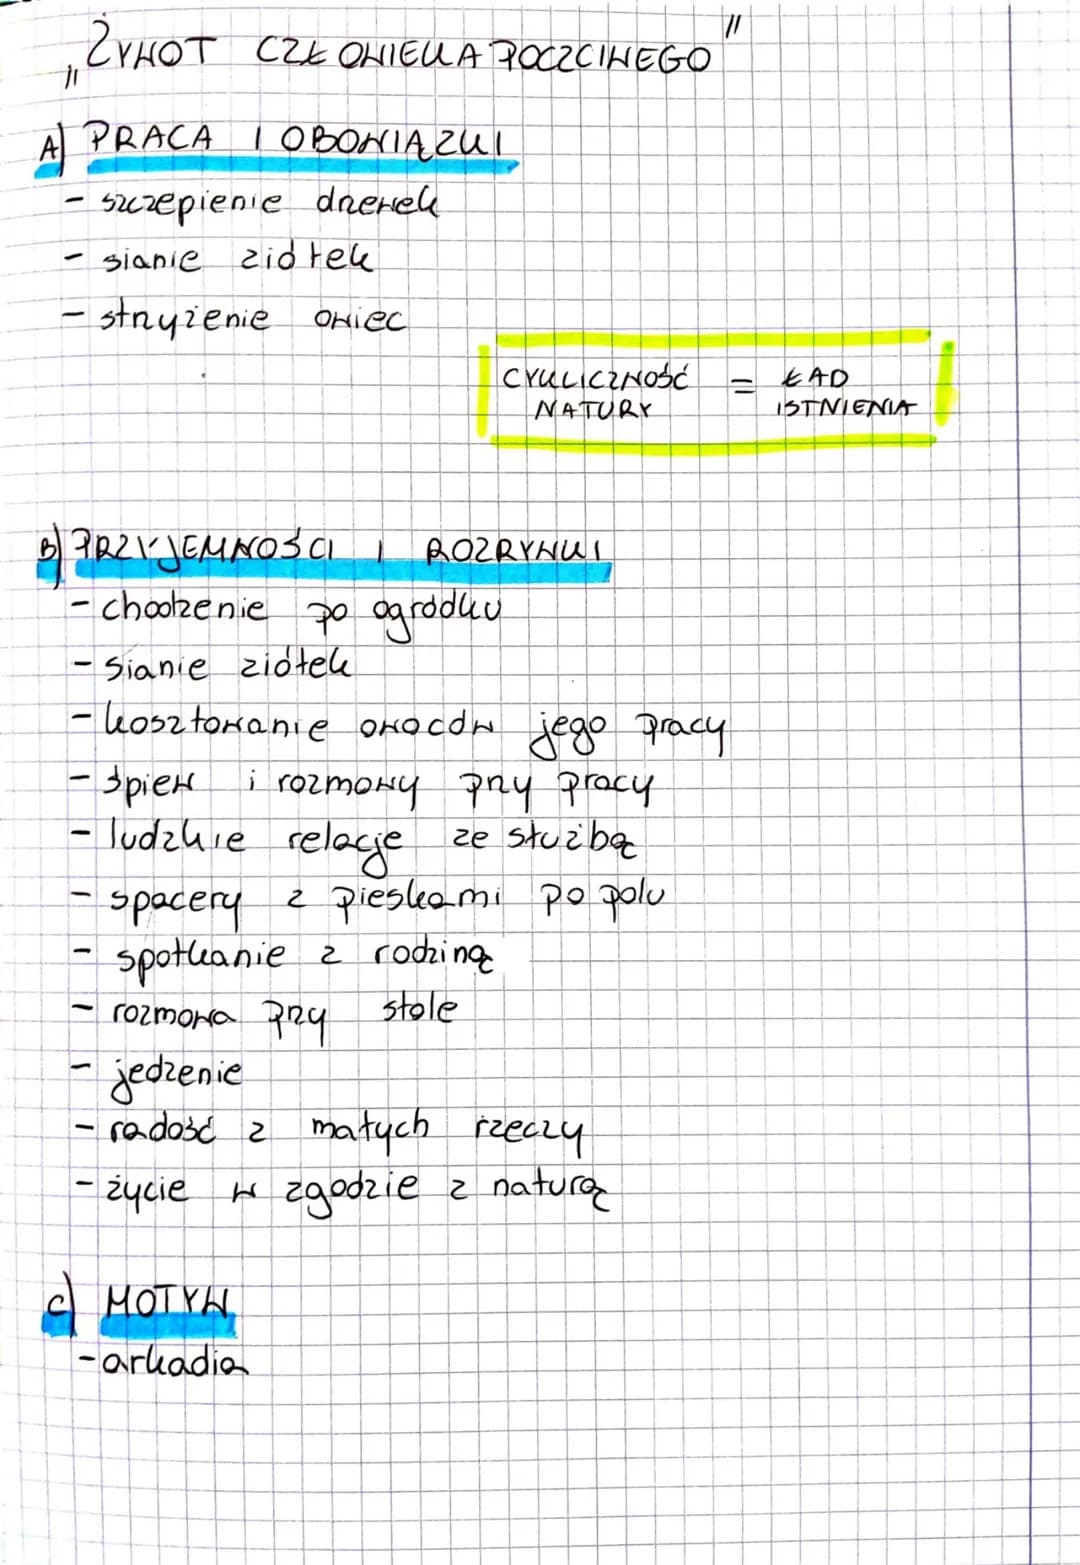 „ŻYWOT CZŁOWIEKA POCZCIWEGO"
A) PRACA I OBOWIĄZKI
- szczepienie drzewek
- sianie ziółek
- strzyżenie owiec
CYKLICZNOŚĆ = ŁAD
NATURY ISTNIENIA
B) PRZYJEMNOŚCI I ROZRYWKI
- chodzenie po ogródku
- sianie ziółek
- kosztowanie owoców jego pracy
- śpiew i rozmowy przy pracy
- ludzkie relacje ze służbą
- spacery z pieskami po polu
- spotkanie z rodziną
- rozmowa przy stole
- jedzenie
- radość z małych rzeczy
- życie w zgodzie z naturą
C) MOTYW
- arkadia